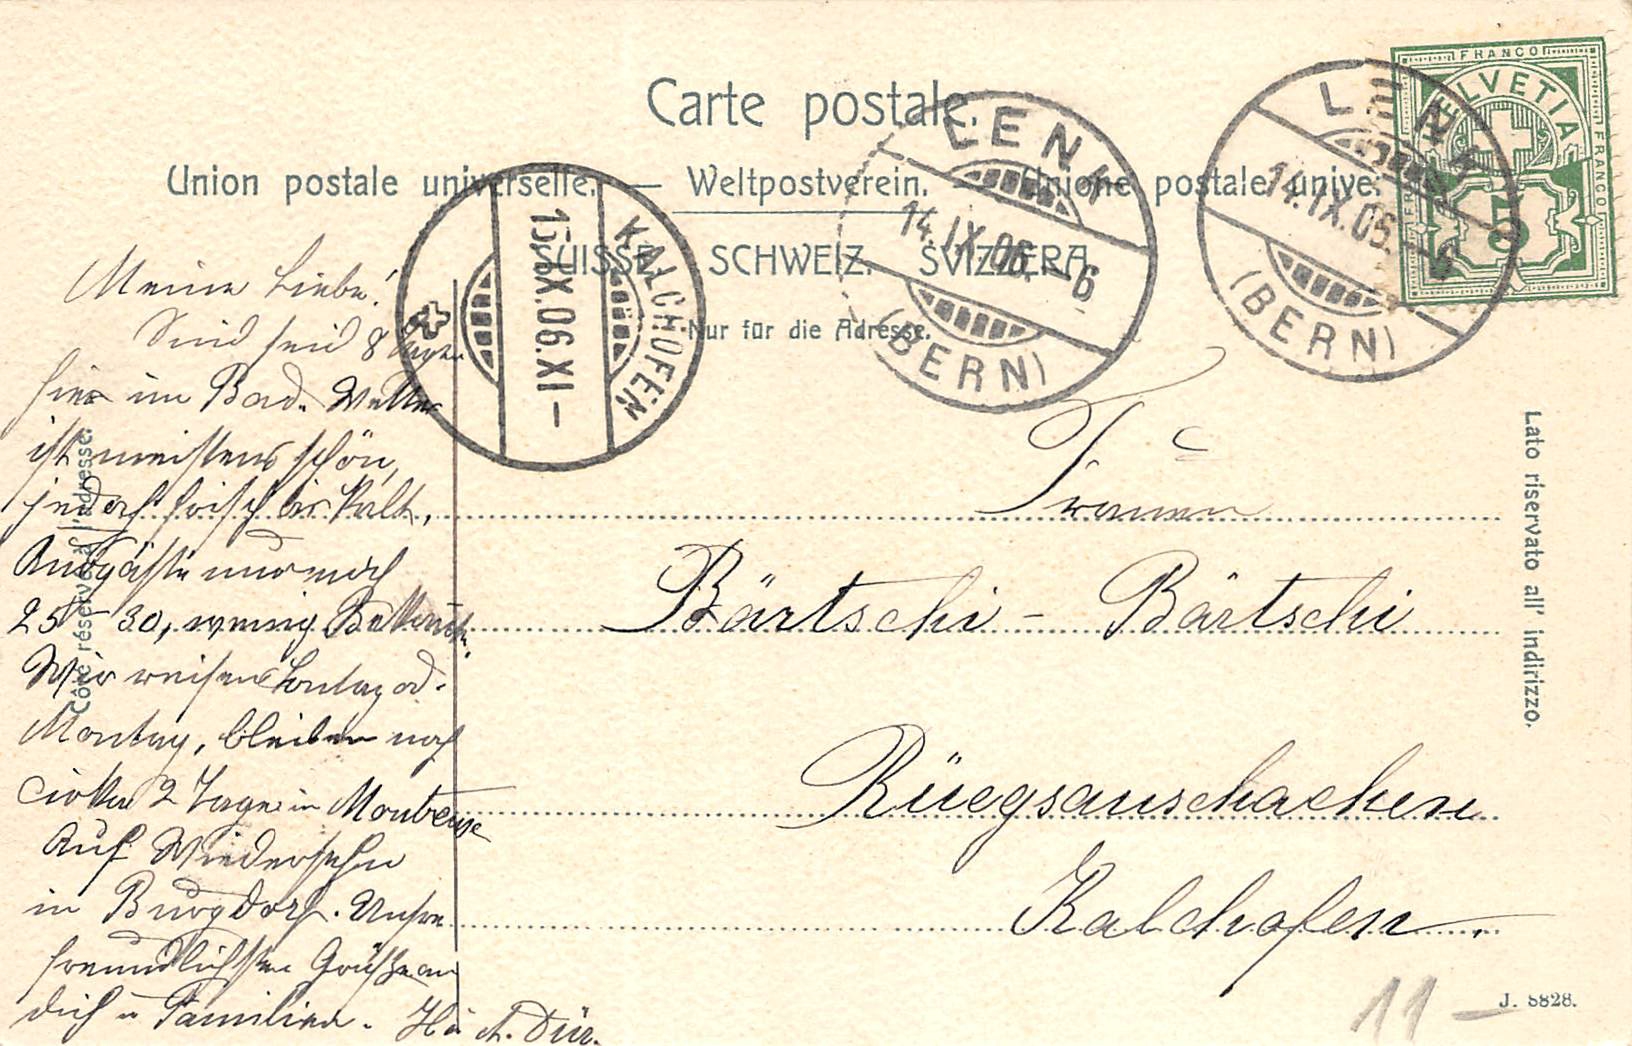 Carte postale.
Union postale universelle. — Weltpostverein. — Unione postale unive
SUISSE SCHWEIZ. SVIZZERA
Nur für die Adresse.
Côté réservé à l'adresse.
Lato riservato all' indirizzo.
FRANCO
HELVETIA
FRANCO
FRANCO
LENK
14.IX.06.–6
(BERN)
LENK
14.IX.06.–6
(BERN)
KALCHOFEN
15.IX.06.XI–
Meine Liebe!
Sind seid 8 Tagen
hier im Bad. Wetter
ist meistens schön,
jedoch frisch bis kalt,
Kurgäste nur noch
25–30, wenig Bekannte.
Wir reisen Sontag od.
Montag, bleiben noch
cirka 2 Tage in Montreux
Auf Wiedersehn
in Burgdorf. Unsre
freundlichsten Grüsse an
dich u Familien. A. Dür.
Frauen
Bärtschi - Bärtschi
Rüegsauschachen
Kalchofen.
11 –
J. 8828.